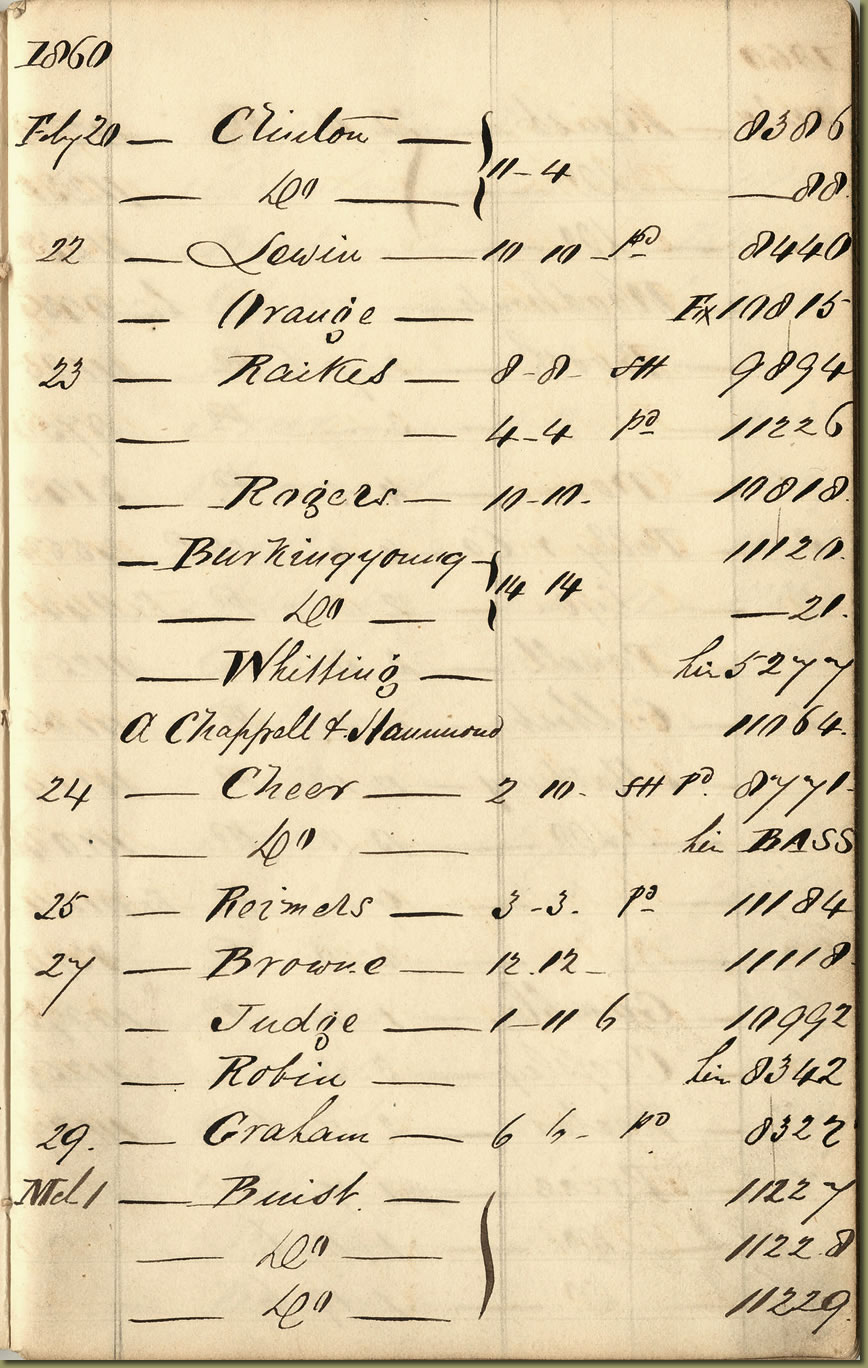 1860
Feby 20 — Clinton — 8386
— Do — } 11-4 — 88.
22 — Lewin — 10 10 - pd 8440
— Orange — Ex 10815
23 — Raikes — 8-8- SH 9894
— — 4-4 pd 11226
— Rogers — 10-10. 10818.
— Burkingyoung - 11120.
— Do — } 14 14 — 21.
— Whitting — hir 5277
A Chappell & Hammond 11064.
24 — Cheer — 2 10. SH pd. 8771.
— Do — hir BASS
25 — Reimers — 3-3. pd 11184
27 — Browne — 12.12- 11118.
— Judge — 1-11 6 10992
— Robin — hir 8342
29. — Graham — 6 6- pd 8322
Mch 1 — Buist. — 11227
— Do — 11228
— Do — 11229.